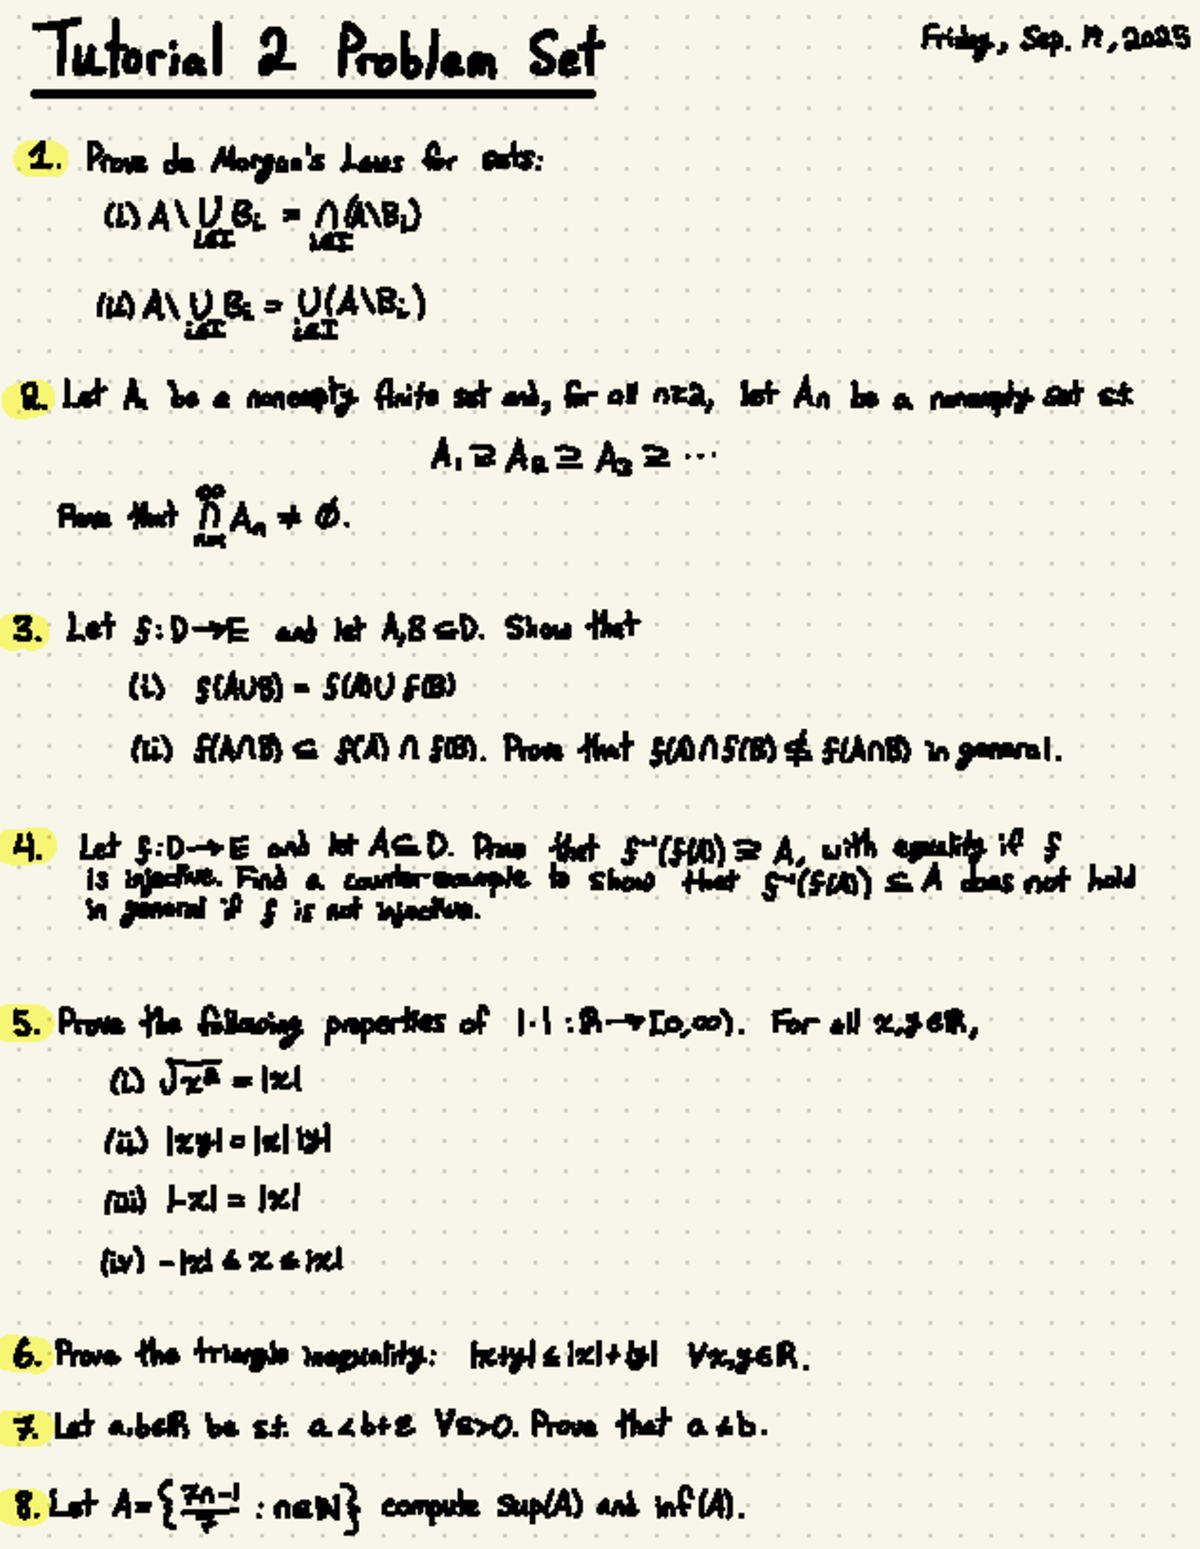 Tutorial 2 Problem Set
Friday, Sep. 19, 2025
1. Prove de Morgan's Laws for sets:
(i) A \ ⋃_{i∈I} B_i = ⋂_{i∈I} (A\B_i)
(ii) A \ ⋃_{i∈I} B_i = ⋃_{i∈I} (A\B_i)
2. Let A₁ be a nonempty finite set and, for all n≥2, let Aₙ be a nonempty set st
A₁ ⊇ A₂ ⊇ A₃ ⊇ ...
Prove that ⋂_{n=1}^∞ Aₙ ≠ ∅.
3. Let f: D→E and let A,B ⊆ D. Show that
(i) f(A∪B) = f(A) ∪ f(B)
(ii) f(A∩B) ⊆ f(A) ∩ f(B). Prove that f(A)∩f(B) ⊈ f(A∩B) in general.
4. Let f: D→E and let A ⊆ D. Prove that f⁻¹(f(A)) ⊇ A, with equality if f
is injective. Find a counterexample to show that f⁻¹(f(A)) ⊆ A does not hold
in general if f is not injective.
5. Prove the following properties of |·| : ℝ→[0,∞). For all x,y∈ℝ,
(i) √x² = |x|
(ii) |xy| = |x||y|
(iii) |-x| = |x|
(iv) -|x| ≤ x ≤ |x|
6. Prove the triangle inequality: |x+y| ≤ |x|+|y| ∀x,y∈ℝ.
7. Let a,b∈ℝ be s.t. a < b+ε ∀ε>0. Prove that a ≤ b.
8. Let A = {(7n-1)/7 : n∈ℕ} compute sup(A) and inf(A).